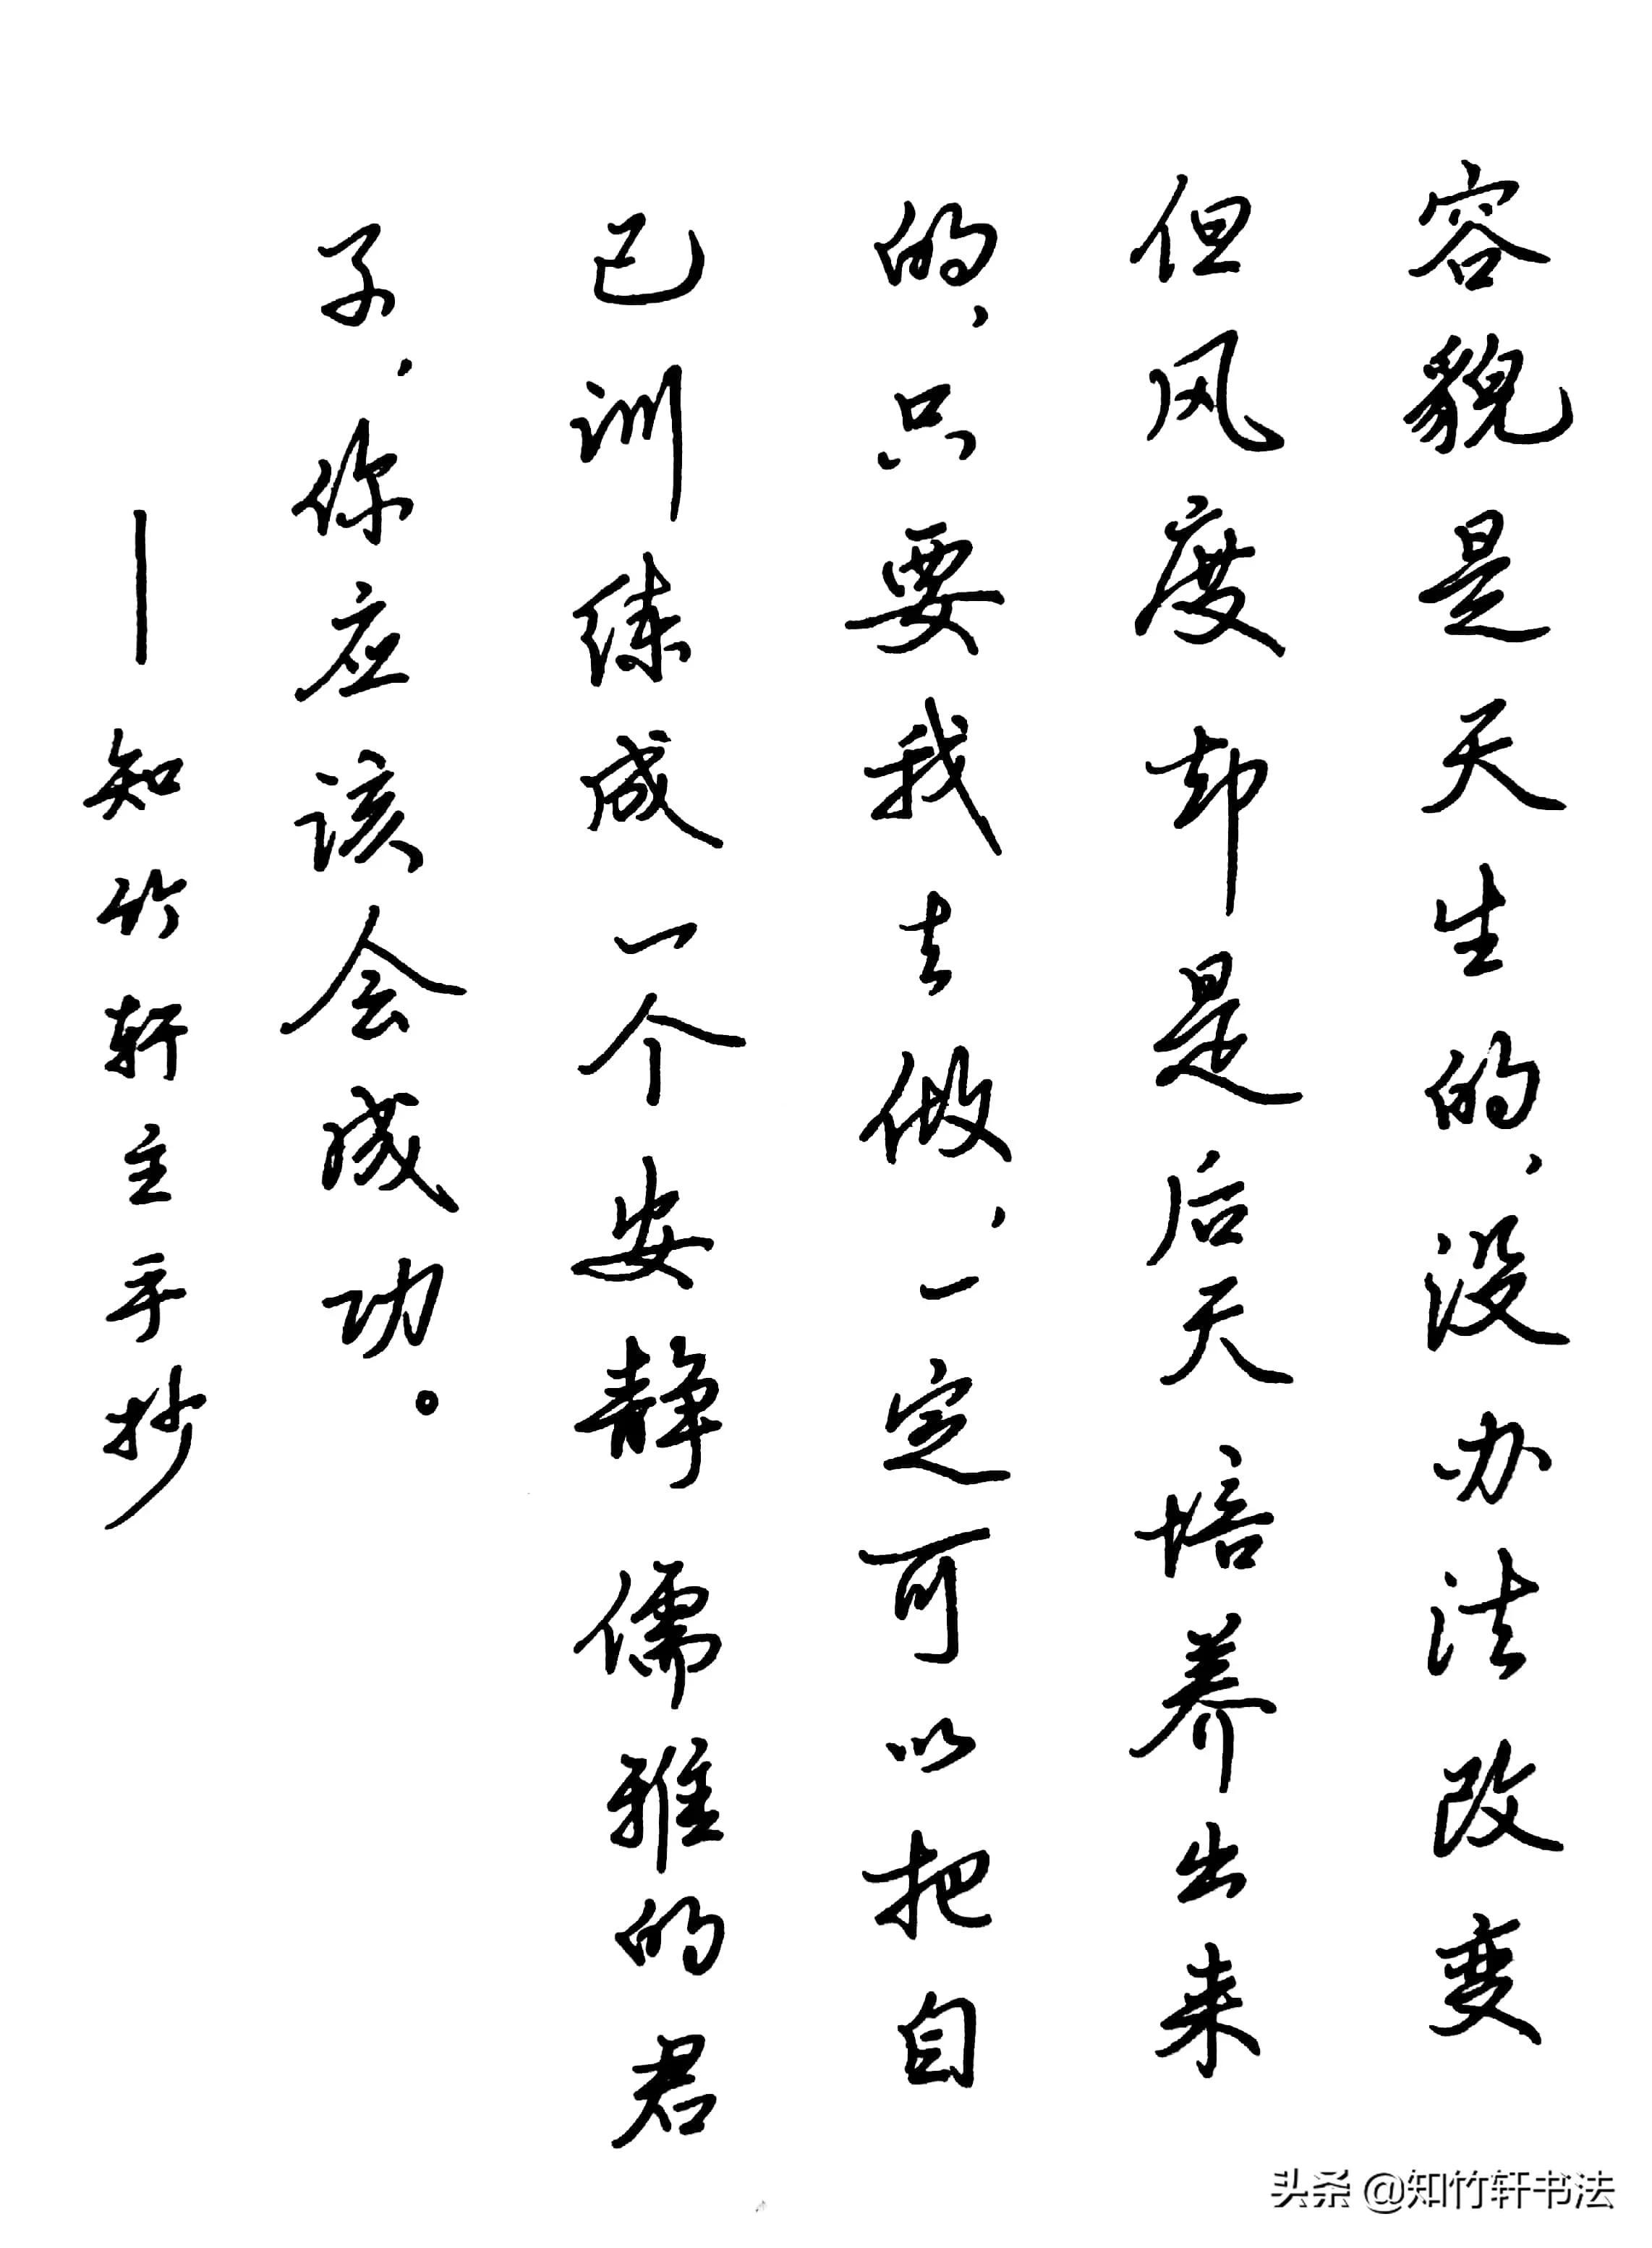 容貌是天生的,没办法改变
但风度却是后天培养出来
的,只要我去做,一定可以把自
己训练成一个安静儒雅的君
子,你应该会成功。
—知竹轩主手抄
头条@知竹轩书法